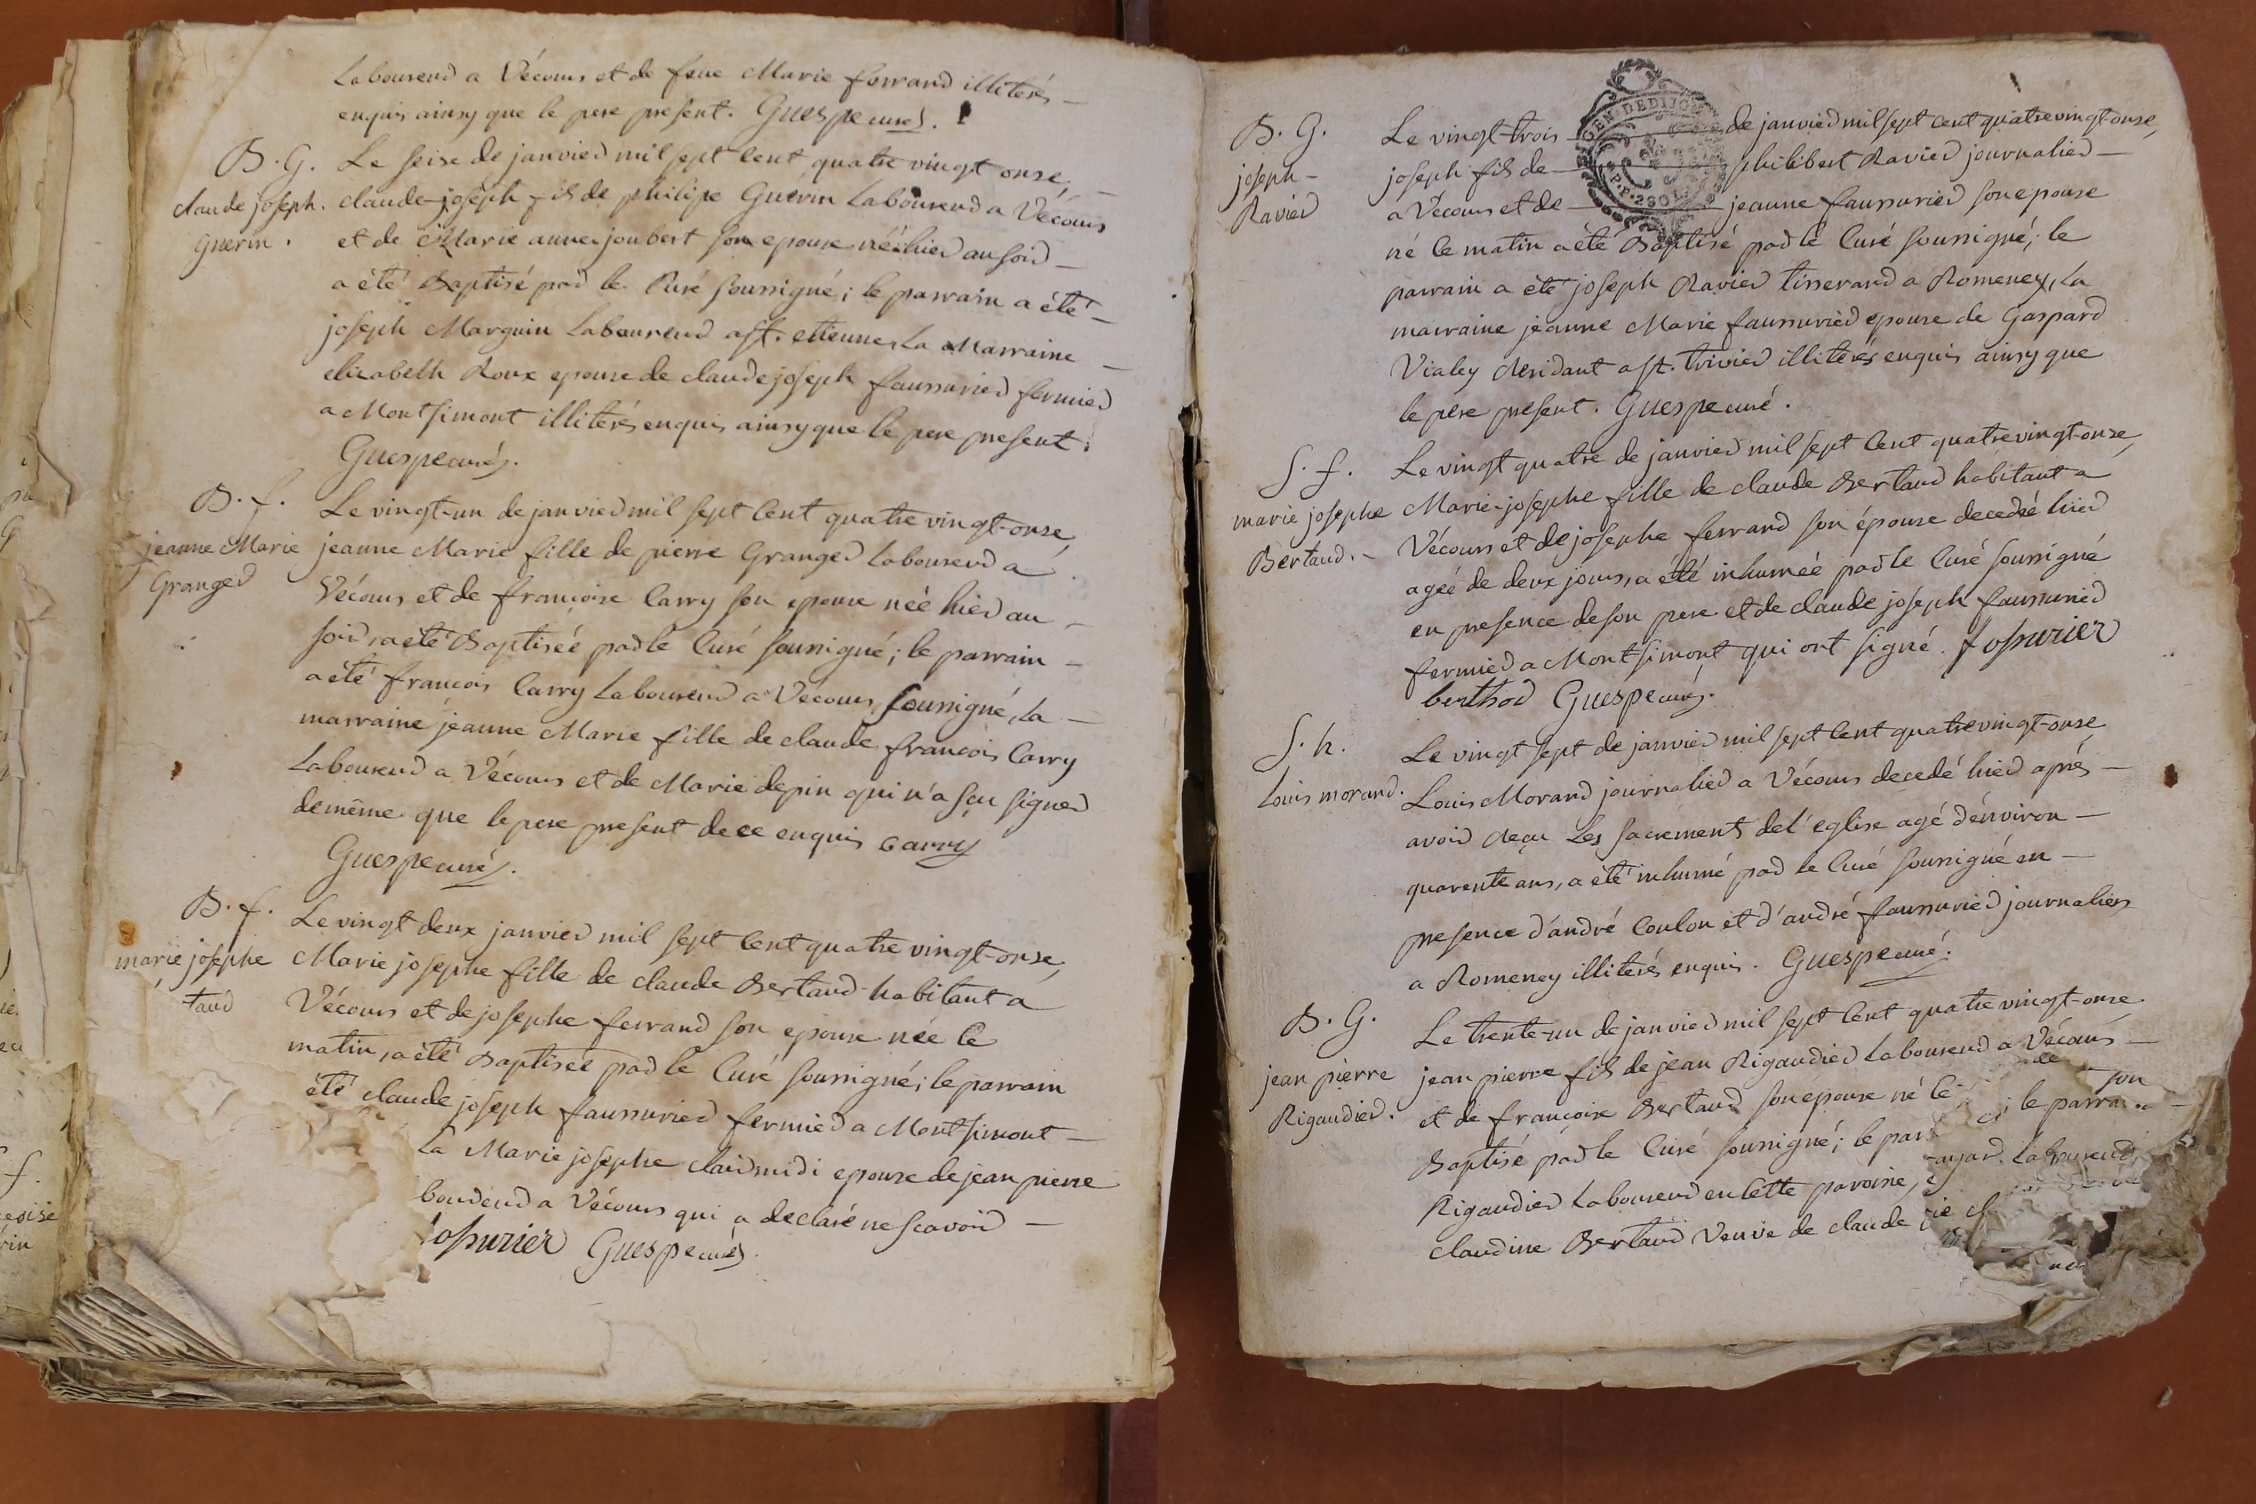 Laboureur a Vécours et de feue Marie ferrand illiterés
enquis ainsy que le pere présent. Guespe curé.
B. G.
claude joseph.
Guerin.
Le seise de janvier mil sept Cent quatre vingt onse,
claude-joseph fils de philipe Guérin Laboureur a Vécours
et de Marie anne joubert son epouse né hier au soir
a été Baptisé par le Curé soussigné; le parrain a été
joseph Marguin Laboureur a st. etienne, La Marraine
elizabeth Roux epouse de claude joseph faussurier fermier
a Montsimont illiterés enquis ainsy que le pere present.
Guespe curé.
B. f.
jeanne Marie
Granger
Le vingt-un de janvier mil sept Cent quatre vingt-onse,
jeanne Marie fille de pierre Granger Laboureur a
Vécours et de françoise Carry son epouse néé hier au
soir, a été Baptiséé par le Curé soussigné; le parrain
a été françois Carry Laboureur a Vécours, soussigné, la
marraine jeanne Marie fille de claude françois Carry
Laboureur a Vécours et de Marie depin qui n'a sçu signer
de même que le pere present de ce enquis carry
Guespe curé.
B. f.
marie josephe
taud
Le vingt deux janvier mil sept Cent quatre vingt-onse,
Marie josephe fille de claude Bertaud habitant a
Vécours et de josephe ferrand son epouse néé ce
matin, a été Baptiséé par le Curé soussigné; le parrain
été claude joseph faussurier fermier a Montsimont
La Marie josephe clairmidi epouse de jean pierre
boureur a Vécours qui a déclaré ne scavoir
fossurier Guespe curé.
B. G.
joseph
Ravier
GEN. DE DIJON
Le vingt-trois de janvier mil sept cent quatre vingt onse,
joseph fils de philibert Ravier journalier
a Vécours et de jeanne faussurier son epouse
né ce matin a été Baptisé par le Curé soussigné; le
parrain a été joseph Ravier tisserand a Romeney, La
marraine jeanne Marie faussurier epouse de Gaspard
Vialey residant a st. trivier illiterés enquis ainsy que
le pere present. Guespe curé.
S. f.
marie josephe
Bertaud.
Le vingt quatre de janvier mil sept Cent quatre vingt-onse,
Marie-josephe fille de claude Bertaud habitant a
Vécours et de josephe ferrand son épouse decedéé hier
agéé de deux jours, a été inhuméé par le Curé soussigné
en presence de son pere et de claude joseph faussurier
fermier a Montsimont qui ont signé. fossurier
berthod Guespe curé.
S. h.
Louis morand.
Le vingt sept de janvier mil sept Cent quatre vingt-onse
Louis Morand journalier a Vécours decedé hier aprés
avoir reçu Les sacrements de l'eglise agé d'environ
quarente ans, a été inhumé par le Curé soussigné en
presence d'andré Coulon et d'andré faussurier journaliers
a Romeney illiterés enquis. Guespe curé.
B. G.
jean pierre
Rigaudier.
Le trente-un de janvier mil sept Cent quatre vingt-onse
jean pierre fils de jean Rigaudier Laboureur a Vécours
et de françoise Bertaud son epouse né le
Baptisé par le Curé soussigné; le par
Rigaudier Laboureur en Cette paroisse,
claudine Bertaud Veuve de claude